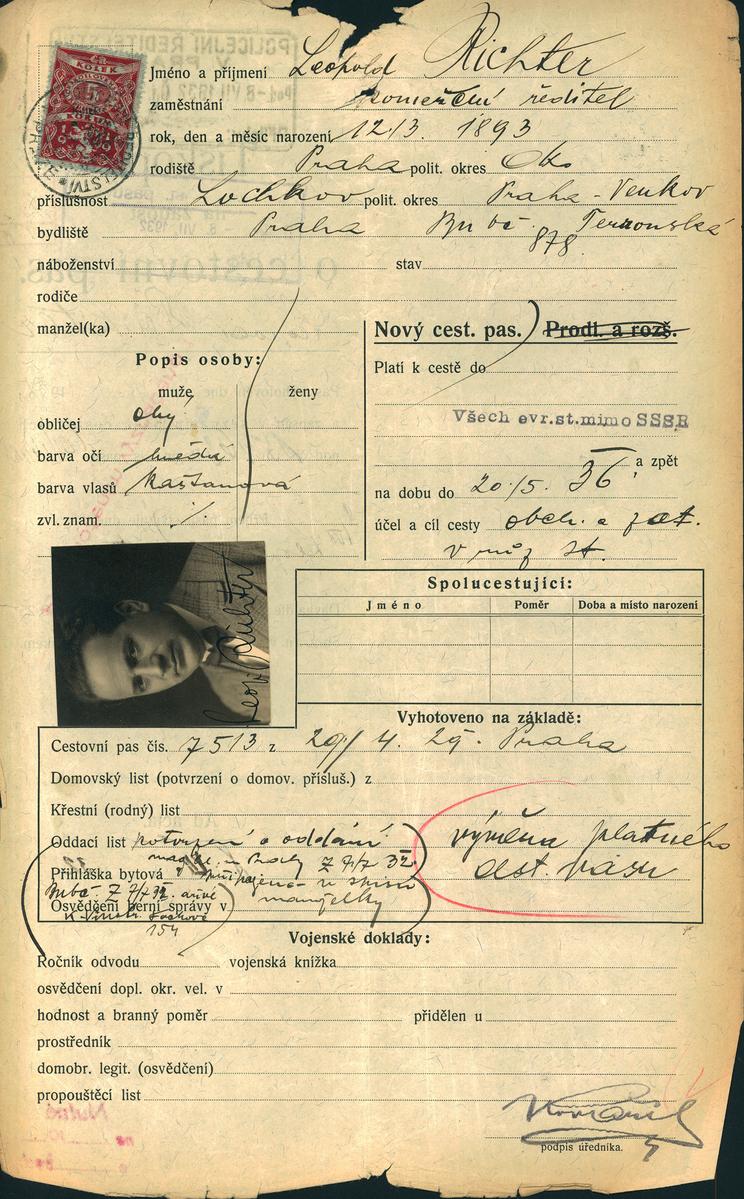 KOLEK
Jméno a příjmení Leopold Richter
zaměstnání komerční ředitel
rok, den a měsíc narození 12/3. 1893
rodiště Praha polit. okres
příslušnost Lochkov polit. okres Praha - Venkov
bydliště Praha Bubč
878
náboženství stav
rodiče
manžel(ka)
Nový cest. pas. Prodl. a rozš.
Popis osoby:
Platí k cestě do
muže ženy
obličej
Všech evr.st.mimo SSSR
barva očí hnědá
a zpět
barva vlasů kaštanová
na dobu do 20/5. 36
zvl. znam. ·/.
účel a cíl cesty obch. a
st.
Leop. Richter
Spolucestující:
Jméno Poměr Doba a místo narození
Vyhotoveno na základě:
Cestovní pas čís. 7513 z 29/4. 29. Praha
Domovský list (potvrzení o domov. přísluš.) z
Křestní (rodný) list
Oddací list potvrzení o oddání
výměna platného
cest. pasu
Přihláška bytová
manželky
Osvědčení berní správy v
154
Vojenské doklady:
Ročník odvodu vojenská knížka
osvědčení dopl. okr. vel. v
hodnost a branný poměr přidělen u
prostředník
domobr. legit. (osvědčení)
propouštěcí list
podpis úředníka.